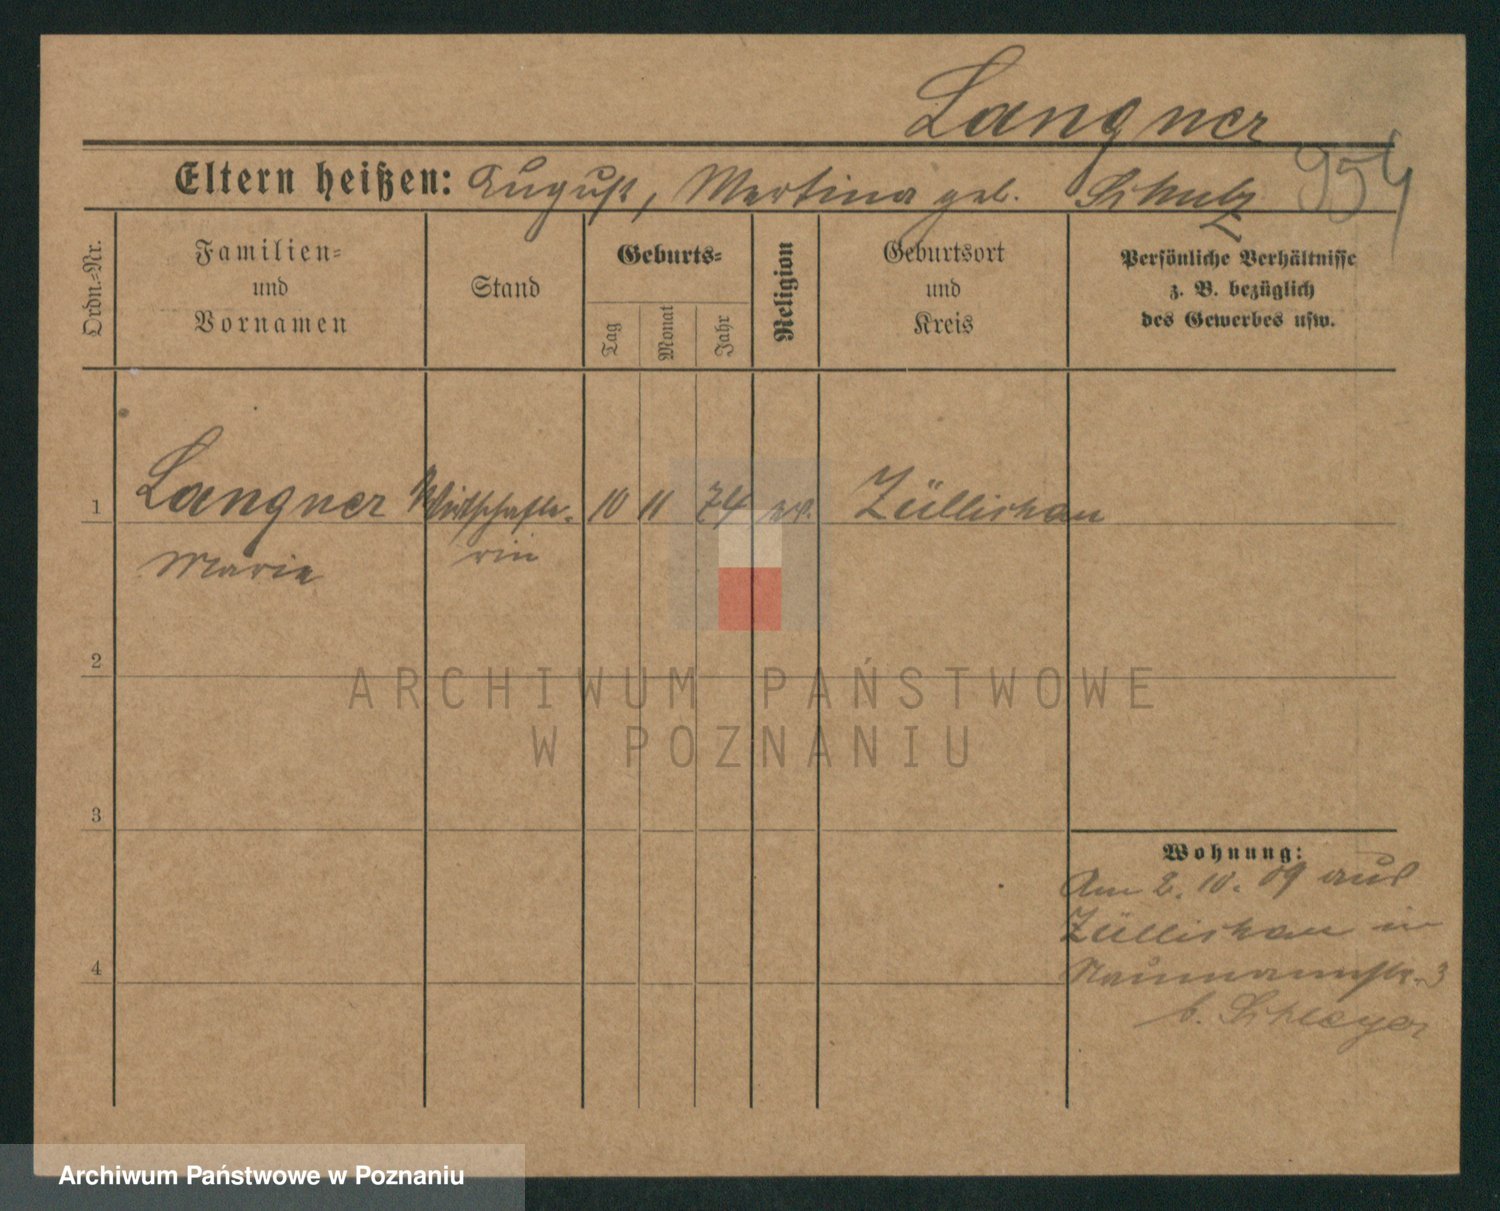 Langner
954
Eltern heißen: August, Martina geb. Schulz
Ordn.-Nr.
Familien-
und
Vornamen
Stand
Geburts-
Tag
Monat
Jahr
Religion
Geburtsort
und
Kreis
Persönliche Verhältnisse
z. B. bezüglich
des Gewerbes usw.
1 Langner Wirtschafte- 10 11 74 ev. Züllichau
Marie rin
2
3
4
Wohnung:
Am 2. 10. 09 aus
Züllichau in
Naumannstr. 3
b. Schleyer
ARCHIWUM PAŃSTWOWE
W POZNANIU
Archiwum Państwowe w Poznaniu